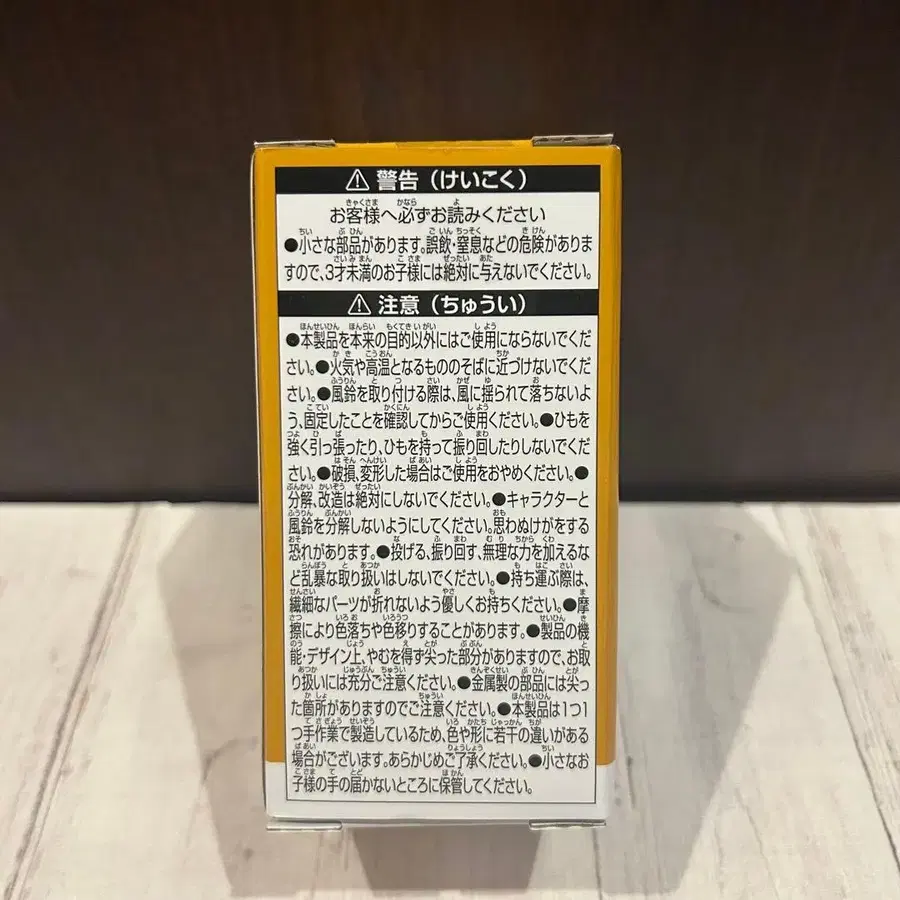 ⚠ 警告(けいこく)
お客様へ必ずお読みください
●小さな部品があります。誤飲・窒息などの危険がありま
すので、3才未満のお子様には絶対に与えないでください。
⚠ 注意(ちゅうい)
●本製品を本来の目的以外にはご使用にならないでくだ
さい。●火気や高温となるもののそばに近づけないでくだ
さい。●風鈴を取り付ける際は、風に揺られて落ちないよ
う、固定したことを確認してからご使用ください。●ひもを
強く引っ張ったり、ひもを持って振り回したりしないでくだ
さい。●破損、変形した場合はご使用をおやめください。●
分解、改造は絶対にしないでください。●キャラクターと
風鈴を分解しないようにしてください。思わぬけがをする
恐れがあります。●投げる、振り回す、無理な力を加えるな
ど乱暴な取り扱いはしないでください。●持ち運ぶ際は、
繊細なパーツが折れないよう優しくお持ちください。●摩
擦により色落ちや色移りすることがあります。●製品の機
能・デザイン上、やむを得ず尖った部分がありますので、お取
り扱いには充分ご注意ください。●金属製の部品には尖っ
た箇所がありますのでご注意ください。●本製品は1つ1
つ手作業で製造しているため、色や形に若干の違いがある
場合がございます。あらかじめご了承ください。●小さなお
子様の手の届かないところに保管してください。